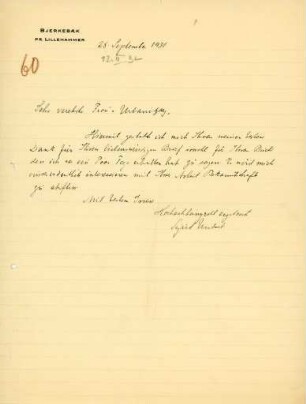 BJERKEBÆK
PR. LILLEHAMMER
28 September 1931
60
Sehr verehrte Frau Urbanitzky.
Hiermit gestatte ich mich Ihnen meinen besten
Dank für Ihren liebenswürdigen Brief sowohl für Ihren Buch
den ich vor ein Paar Tage erhalten hab zu sagen. Es wird mich
ausserordentlich interessieren mit Ihre Arbeit Bekanntschaft
zu stiften.
Mit besten Grüssen
Hochachtungsvoll ergebenst
Sigrid Undset